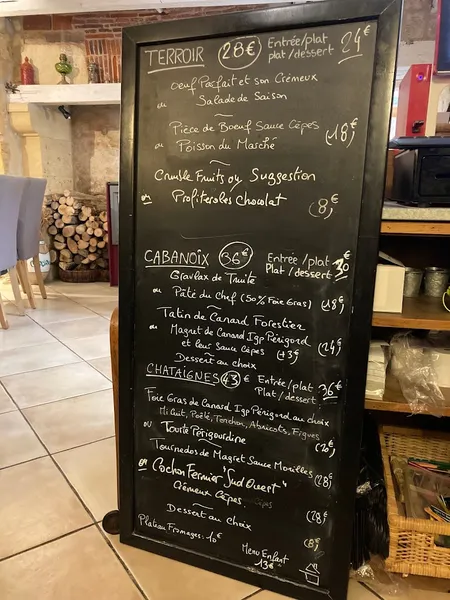 TERROIR 28€ Entrée/plat plat/dessert 24€
Oeuf Parfait et son Crémeux
ou Salade de Saison
~
Pièce de Boeuf Sauce Cèpes
ou Poisson du Marché (18,€
~
Crumble Fruits ou Suggestion
ou Profiteroles Chocolat (8,€
CABANOIX 36€ Entrée/plat Plat/dessert 30€
Gravlax de Truite
ou Pâté du Chef (50% Foie Gras) (18,€
Tatin de Canard Forestier
ou Magret de Canard Igp Périgord
et leur Sauce Cèpes (+3€ (24,€
Dessert au choix
CHATAIGNES 43€ Entrée/plat Plat/dessert 36€
Foie Gras de Canard Igp Périgord au choix
Mi Cuit, Poêlé, Torchon, Abricots, Figues
ou Tourte Périgourdine (20,€
~
Tournedos de Magret Sauce Morilles (28,€
ou Cochon Fermier "Sud Ouest"
Crémeux Cèpes (28,€
~
Dessert au Choix (8,€
Plateau Fromages: 10€
Menu Enfant
13€